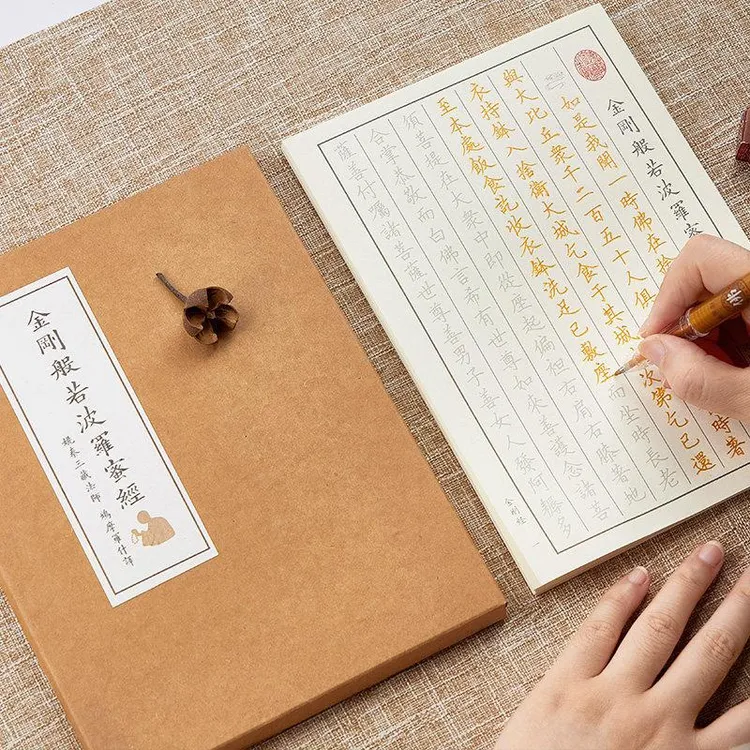 金剛般若波羅蜜經
姚秦三藏法師 鳩摩羅什譯
金剛般若波羅蜜
如是我聞一時佛在捨
與大比丘眾千二百五十人俱時著
衣持鉢入捨衛大城乞食于其城次第乞已還
至本處飯食訖收衣鉢洗足已敷座而坐時長老
須菩提在大眾中即從座起偏袒右肩右膝著地
合掌恭敬而白佛言希有世尊如來善護念諸菩
薩善付囑諸菩薩世尊善男子善女人發阿耨多
金剛經 一